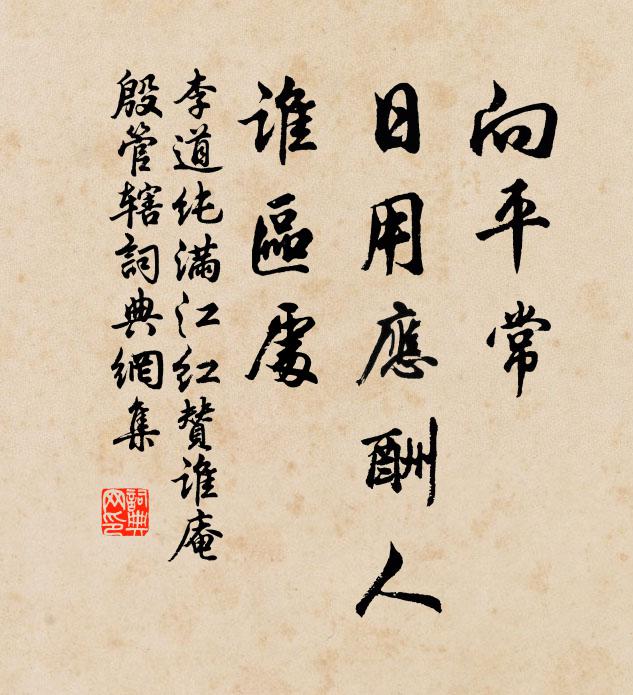 向平常
日用應酬人
誰區處
李道纯满江红贊誰庵
殷管辖詞典網集
詞典网印